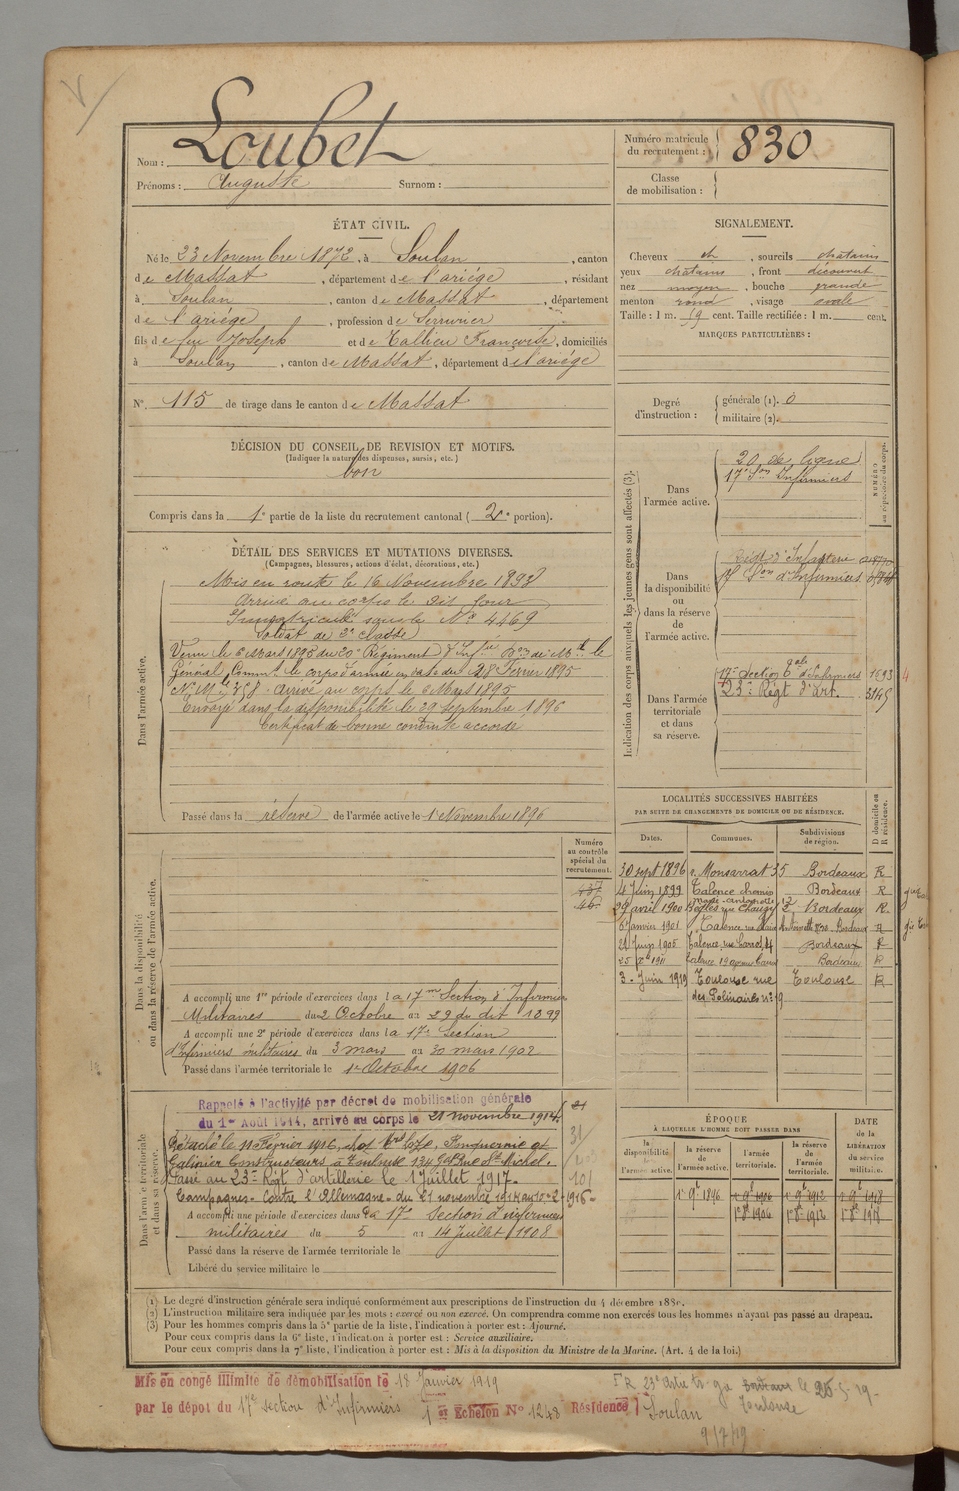 Loubet
Nom :
Prénoms : Auguste Surnom :
Numéro matricule
du recrutement : 830
Classe
de mobilisation :
ÉTAT CIVIL.
Né le 23 Novembre 1872, à Soulan, canton
de Massat, département de l'ariége, résidant
à Soulan, canton de Massat, département
de l'ariége, profession de Serrurier
fils de feu Joseph et de Françoise, domiciliés
à Soulan, canton de Massat, département de l'ariége
N° 115 de tirage dans le canton de Massat
DÉCISION DU CONSEIL DE REVISION ET MOTIFS.
(Indiquer la nature des dispenses, sursis, etc.)
bon
Compris dans la 1e partie de la liste du recrutement cantonal (2e portion).
SIGNALEMENT.
Cheveux ch, sourcils châtains
yeux châtains, front découvert
nez moyen, bouche grande
menton rond, visage ovale
Taille : 1 m. 59 cent. Taille rectifiée : 1 m. cent.
MARQUES PARTICULIÈRES :
Degré
d'instruction :
générale (1). 0
militaire (2).
DÉTAIL DES SERVICES ET MUTATIONS DIVERSES.
(Campagnes, blessures, actions d'éclat, décorations, etc.)
Dans l'armée active.
Mis en route le 16 Novembre 1893
Arrivé au corps le dit jour
Immatriculé sous le N° 4469
Soldat de 2e classe
Venu le 6 Mars 1895 du 20e Régiment d'Infie le
Général Commt le corps d'armée en date du 28 Février 1895
arrivé au corps le 6 Mars 1895
Envoyé dans la disponibilité le 29 septembre 1896
Certificat de bonne conduite accordé
Passé dans la réserve de l'armée active le 1 Novembre 1896
Indication des corps auxquels les jeunes gens sont affectés (3).
NUMÉRO
au répertoire du corps.
Dans
l'armée active.
20 de ligne
17e Son Infirmiers
Dans
la disponibilité
ou
dans la réserve de
l'armée active.
Régt d'Infanterie
17 Son d'Infirmiers
Dans l'armée
territoriale
et dans
sa réserve.
17e Section d'Infirmiers 1693
23e Régt d'Art. 3145
LOCALITÉS SUCCESSIVES HABITÉES
PAR SUITE DE CHANGEMENTS DE DOMICILE OU DE RÉSIDENCE.
Dates. Communes. Subdivisions
de région. D domicile ou
R résidence.
30 sept 1896 r. Monsarrat 35 Bordeaux R
4 Juin 1899 Talence Bordeaux R
29 avril 1900 Bègles rue Bordeaux R
6 Janvier 1901 Talence, rue Bordeaux R
21 1905 Talence, rue Bordeaux R
25 1911 Talence 19 Bordeaux R
3 Juin 1919 Toulouse rue Toulouse R
des Polinaires n° 19
Dans la disponibilité
ou dans la réserve de l'armée active.
Numéro
au contrôle
spécial du
recrutement.
137
46
A accompli une 1re période d'exercices dans la 17me Section d'Infirmiers
Militaires du 2 Octobre au 29 du dit 1899
A accompli une 2e période d'exercices dans la 17e Section
d'Infirmiers militaires du 3 mars au 30 mars 1902
Passé dans l'armée territoriale le 1er Octobre 1906
Dans l'armée territoriale
et dans sa réserve.
Rappelé à l'activité par décret de mobilisation générale
du 1er Août 1914, arrivé au corps le 21 novembre 1914
Détaché le 11 Février 1916,
Constructeurs à Toulouse 134 Gde Rue St Michel.
Passé au 23e Régt d'artillerie le 1er Juillet 1917
Campagnes Contre l'Allemagne du 21 novembre 1914 au 10-2-1916
A accompli une période d'exercices dans la 17e Section d'infirmiers
militaires du 5 au 14 Juillet 1908
Passé dans la réserve de l'armée territoriale le
Libéré du service militaire le
ÉPOQUE
À LAQUELLE L'HOMME DOIT PASSER DANS
la
disponibilité
de
l'armée active.
la
réserve de
l'armée active.
l'armée
territoriale.
la réserve
de
l'armée
territoriale.
DATE
de la
LIBÉRATION
du service
militaire.
1er 9e 1896 1er 9e 1906 1er 9e 1912 1er 9e 1918
1er 8e 1906 1er 8e 1912 1er 8e 1918
(1) Le degré d'instruction générale sera indiqué conformément aux prescriptions de l'instruction du 4 décembre 1889.
(2) L'instruction militaire sera indiquée par les mots : exercé ou non exercé. On comprendra comme non exercés tous les hommes n'ayant pas passé au drapeau.
(3) Pour les hommes compris dans la 5e partie de la liste, l'indication à porter est : Ajourné.
Pour ceux compris dans la 6e liste, l'indication à porter est : Service auxiliaire.
Pour ceux compris dans la 7e liste, l'indication à porter est : Mis à la disposition du Ministre de la Marine. (Art. 4 de la loi.)
Mis en congé illimité de démobilisation le 18 Janvier 1919
par le dépôt du 17e section d'Infirmiers 1er Echelon N° 1248 Résidence Soulan
Bordeaux le 25-5-19
Toulouse
9/7/19